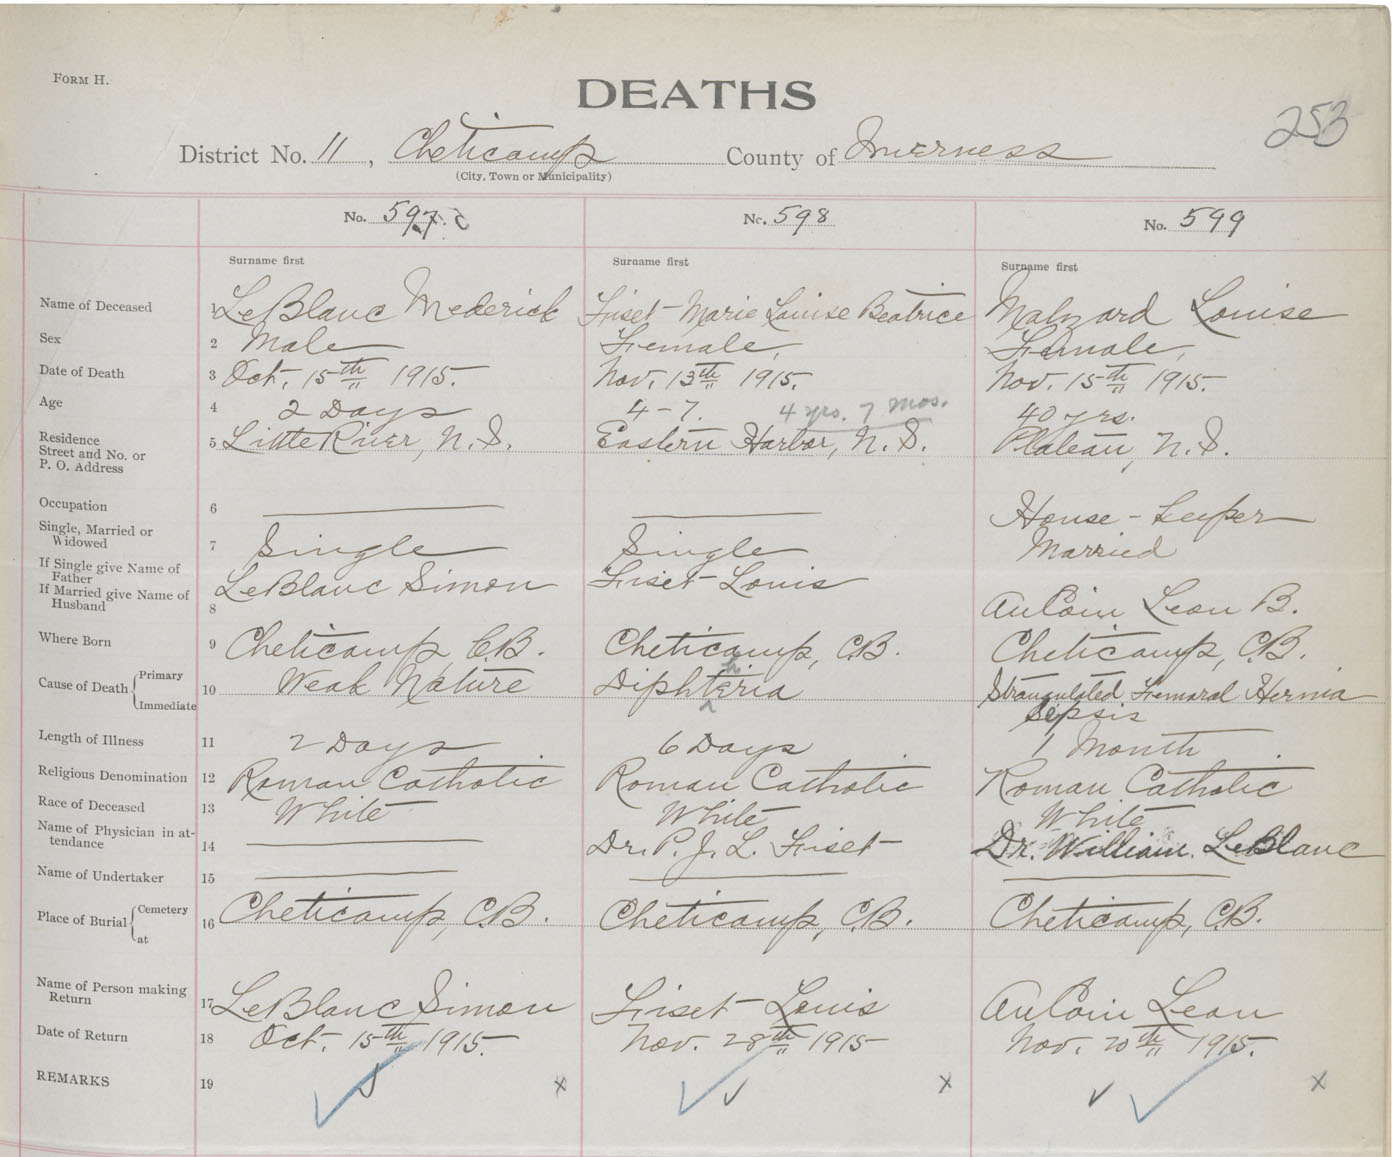 FORM H.
DEATHS
253
District No. 11, Cheticamp County of Inverness
(City, Town or Municipality)
No. 597. C No. 598 No. 599
Surname first Surname first Surname first
Name of Deceased 1 LeBlanc Mederick Fiset Marie Louise Beatrice Malzard Louise
Sex 2 Male Female, Female,
Date of Death 3 Oct. 15th 1915. Nov. 13th 1915. Nov. 15th 1915.
Age 4 2 Days 4-7. 4 yrs. 7 mos. 40 yrs.
Residence
Street and No. or
P. O. Address
5 Little River, N.S. Eastern Harbor, N.S. Plateau, N.S.
Occupation 6 House-keeper
Single, Married or
Widowed
7 Single Single Married
If Single give Name of
Father
LeBlanc Simon Fiset Louis
If Married give Name of
Husband
8 AuCoin Leon B.
Where Born 9 Cheticamp C.B. Cheticamp, C.B. Cheticamp, C.B.
Cause of Death Primary
Immediate
10 Weak Nature Diphtheria Strangulated Femoral Hernia
Sepsis
Length of Illness 11 2 Days 6 Days 1 Month
Religious Denomination 12 Roman Catholic Roman Catholic Roman Catholic
Race of Deceased 13 White White White
Name of Physician in at-
tendance
14 Dr. P. J. L. Fiset Dr. William LeBlanc
Name of Undertaker 15
Place of Burial Cemetery
at
16 Cheticamp, C.B. Cheticamp, C.B. Cheticamp, C.B.
Name of Person making
Return
17 LeBlanc Simon Fiset Louis AuCoin Leon
Date of Return 18 Oct. 15th 1915. Nov. 28th 1915 Nov. 20th 1915.
REMARKS 19 x x x